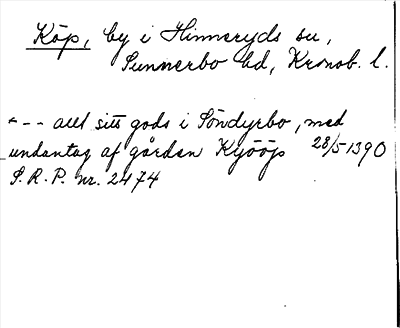 Köp, by i Hinneryds sn,
Sunnerbo hd, Kronob. l.
--- allt sitt gods i Söndyrbo, med
undantag af gården Kyööp 28/5 1390
S.R.P. nr. 2474